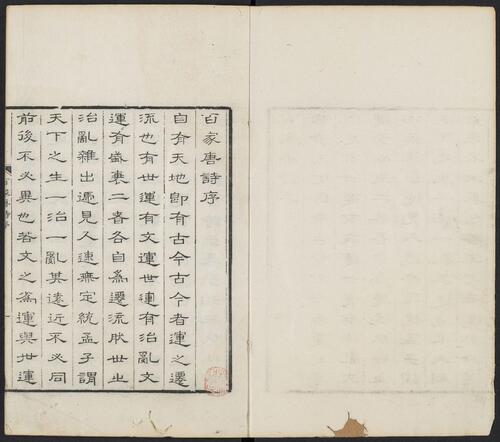 百家唐詩序
自有天地卽有古今古今者運之遷
流也有世運有文運世運有治亂文
運有盛衰二者各自為遷流肰世之
治亂雜出遞見久速無定統孟子謂
天下之生一治一亂其遠近不必同
前後不必異也若文之為運與世運